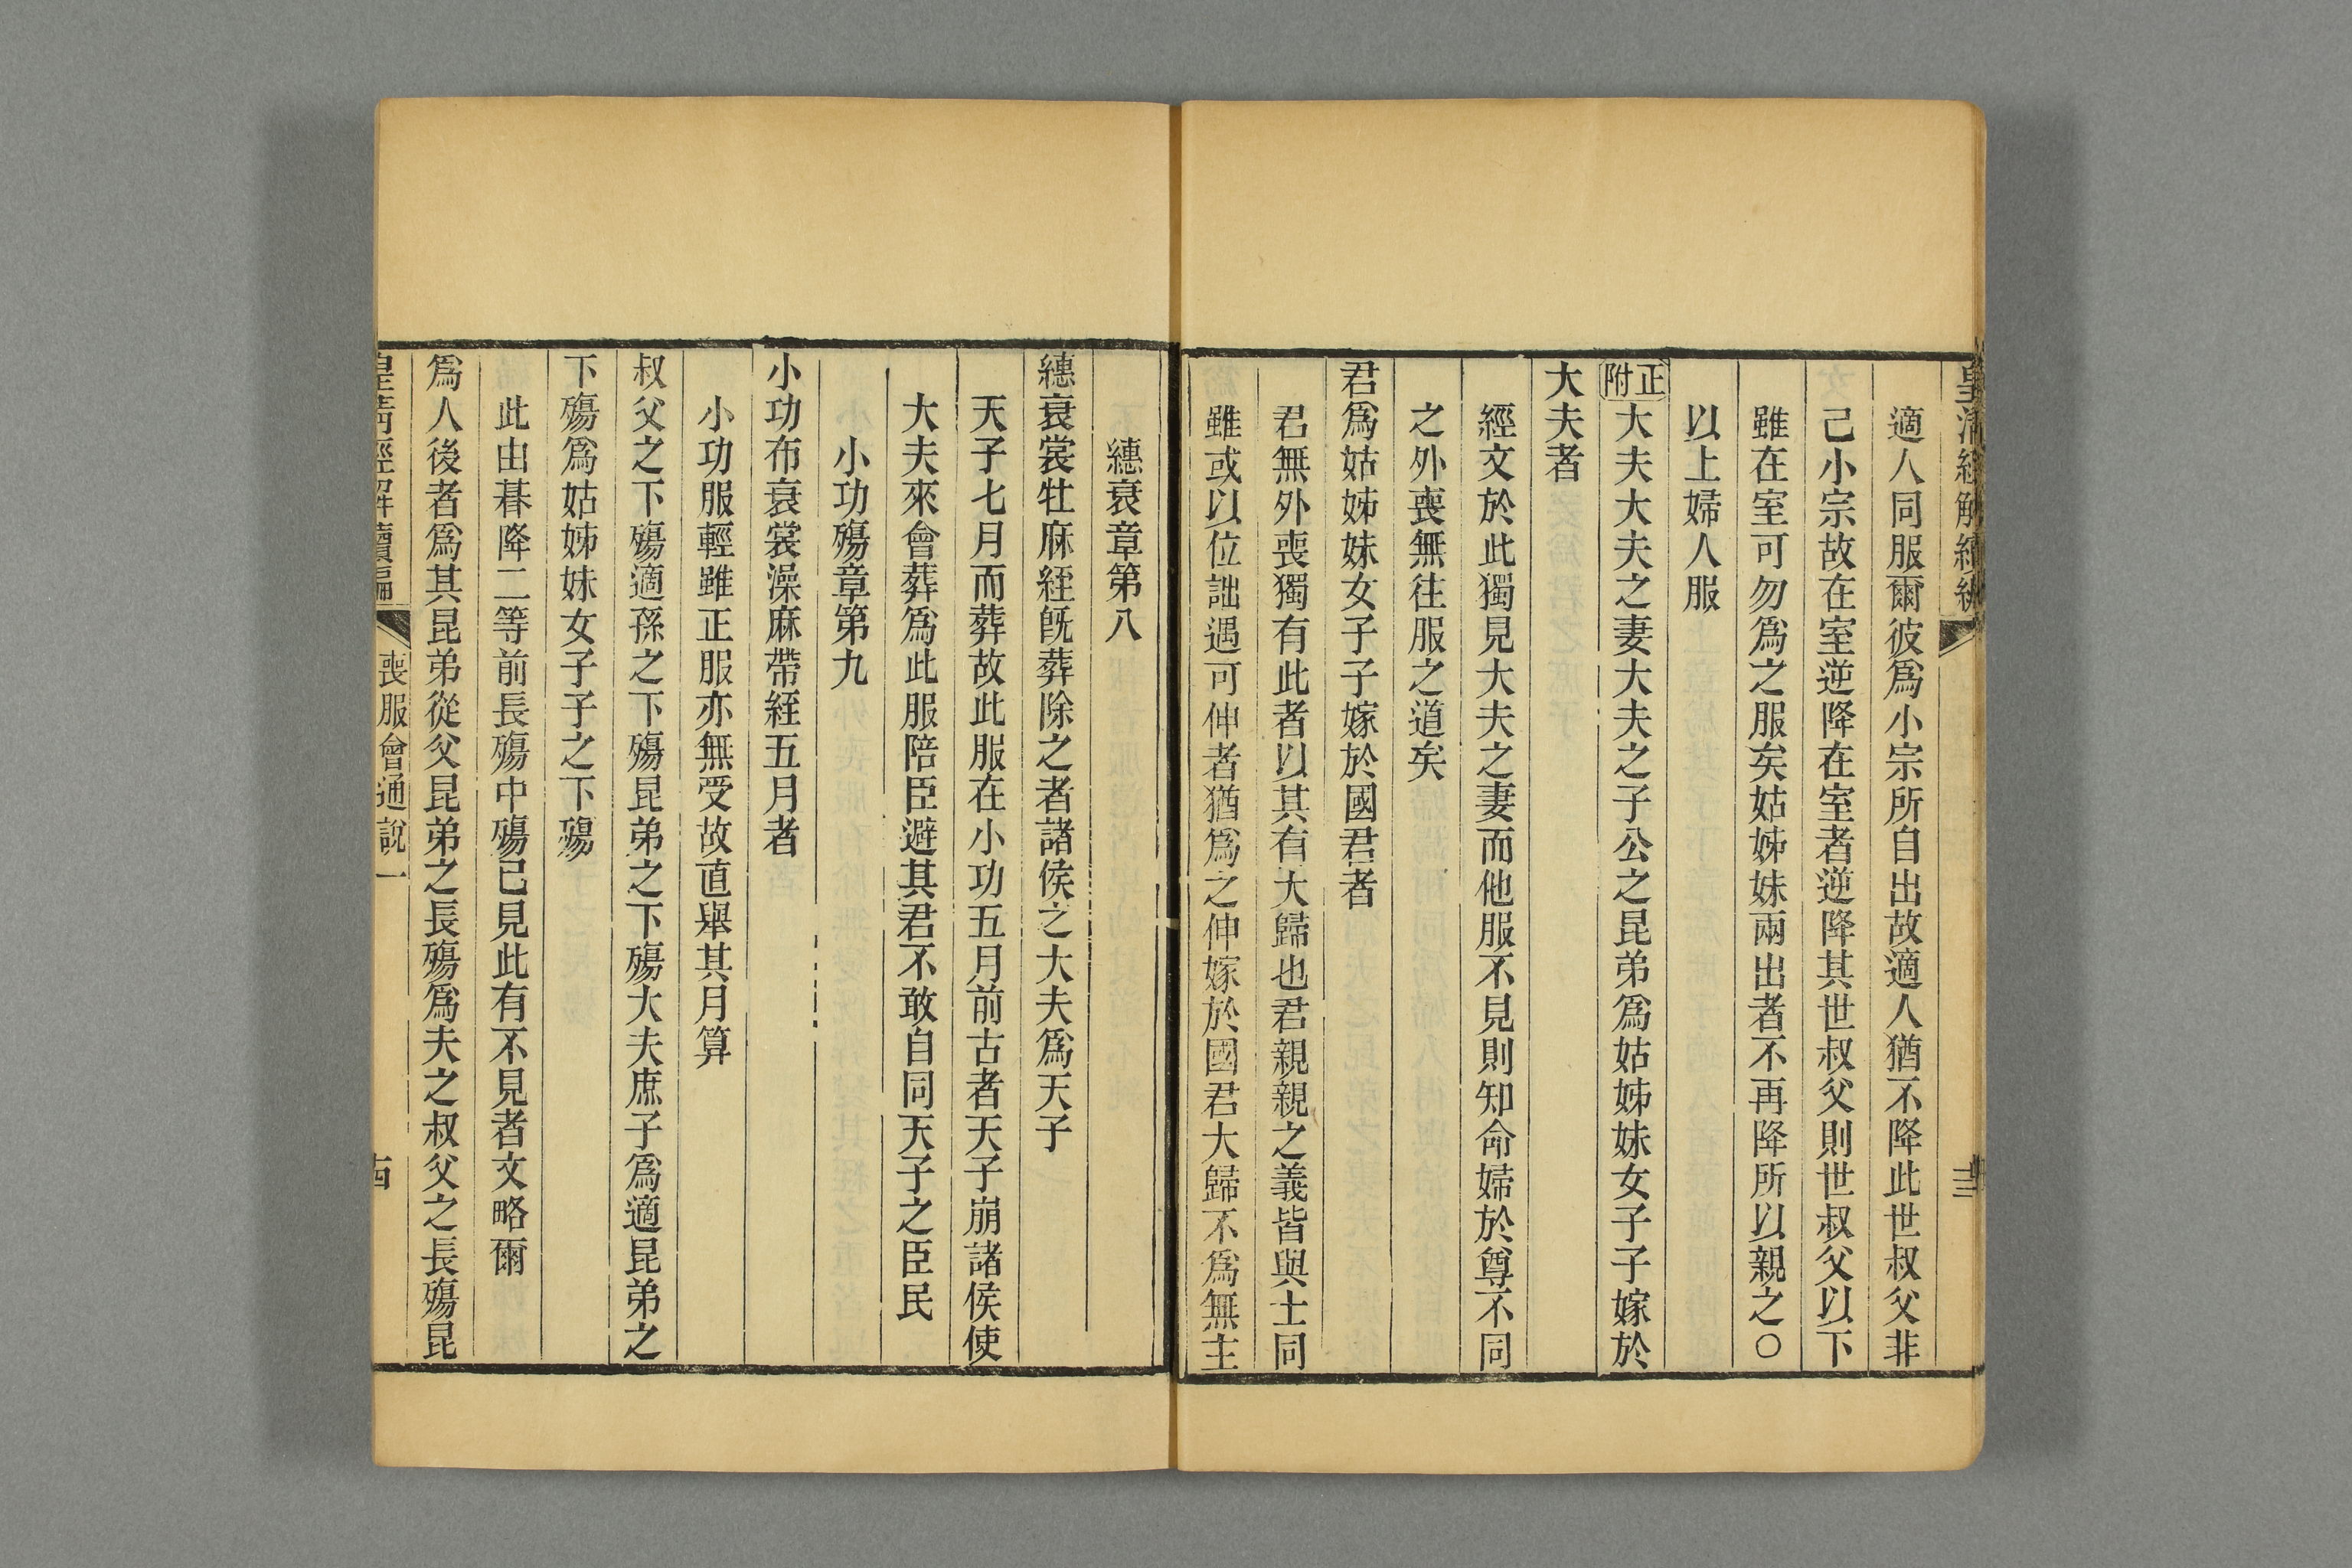 皇清經解續編
適人同服爾彼爲小宗所自出故適人猶不降此世叔父非
己小宗故在室逆降在室者逆降其世叔父則世叔父以下
雖在室可勿爲之服矣姑姊妹兩出者不再降所以親之○
以上婦人服
正附大夫大夫之妻大夫之子公之昆弟爲姑姊妹女子子嫁於
大夫者
經文於此獨見大夫之妻而他服不見則知命婦於尊不同
之外喪無往服之道矣
君爲姑姊妹女子子嫁於國君者
君無外喪獨有此者以其有大歸也君親親之義皆與士同
雖或以位詘遇可伸者猶爲之伸嫁於國君大歸不爲無主
繐衰章第八
繐衰裳牡麻絰旣葬除之者諸侯之大夫爲天子
天子七月而葬故此服在小功五月前古者天子崩諸侯使
大夫來會葬爲此服陪臣避其君不敢自同天子之臣民
小功殤章第九
小功布衰裳澡麻帶絰五月者
小功服輕雖正服亦無受故直舉其月算
叔父之下殤適孫之下殤昆弟之下殤大夫庶子爲適昆弟之
下殤爲姑姊妹女子子之下殤
此由朞降二等前長殤中殤已見此有不見者文略爾
爲人後者爲其昆弟從父昆弟之長殤爲夫之叔父之長殤昆
皇清經解續編
喪服會通說一